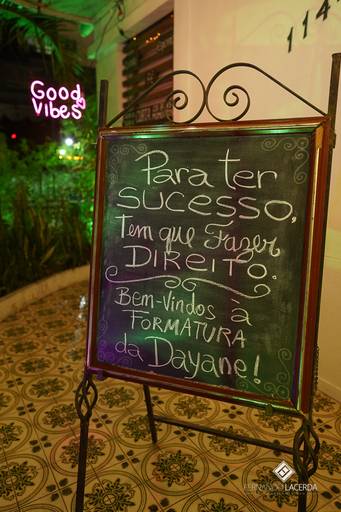 Good
Vibes
114
Para ter
SUCESSO,
Tem que Fazer
DIREITO.
Bem-Vindos à
FORMATURA
da Dayane!
FERNANDO LACERDA